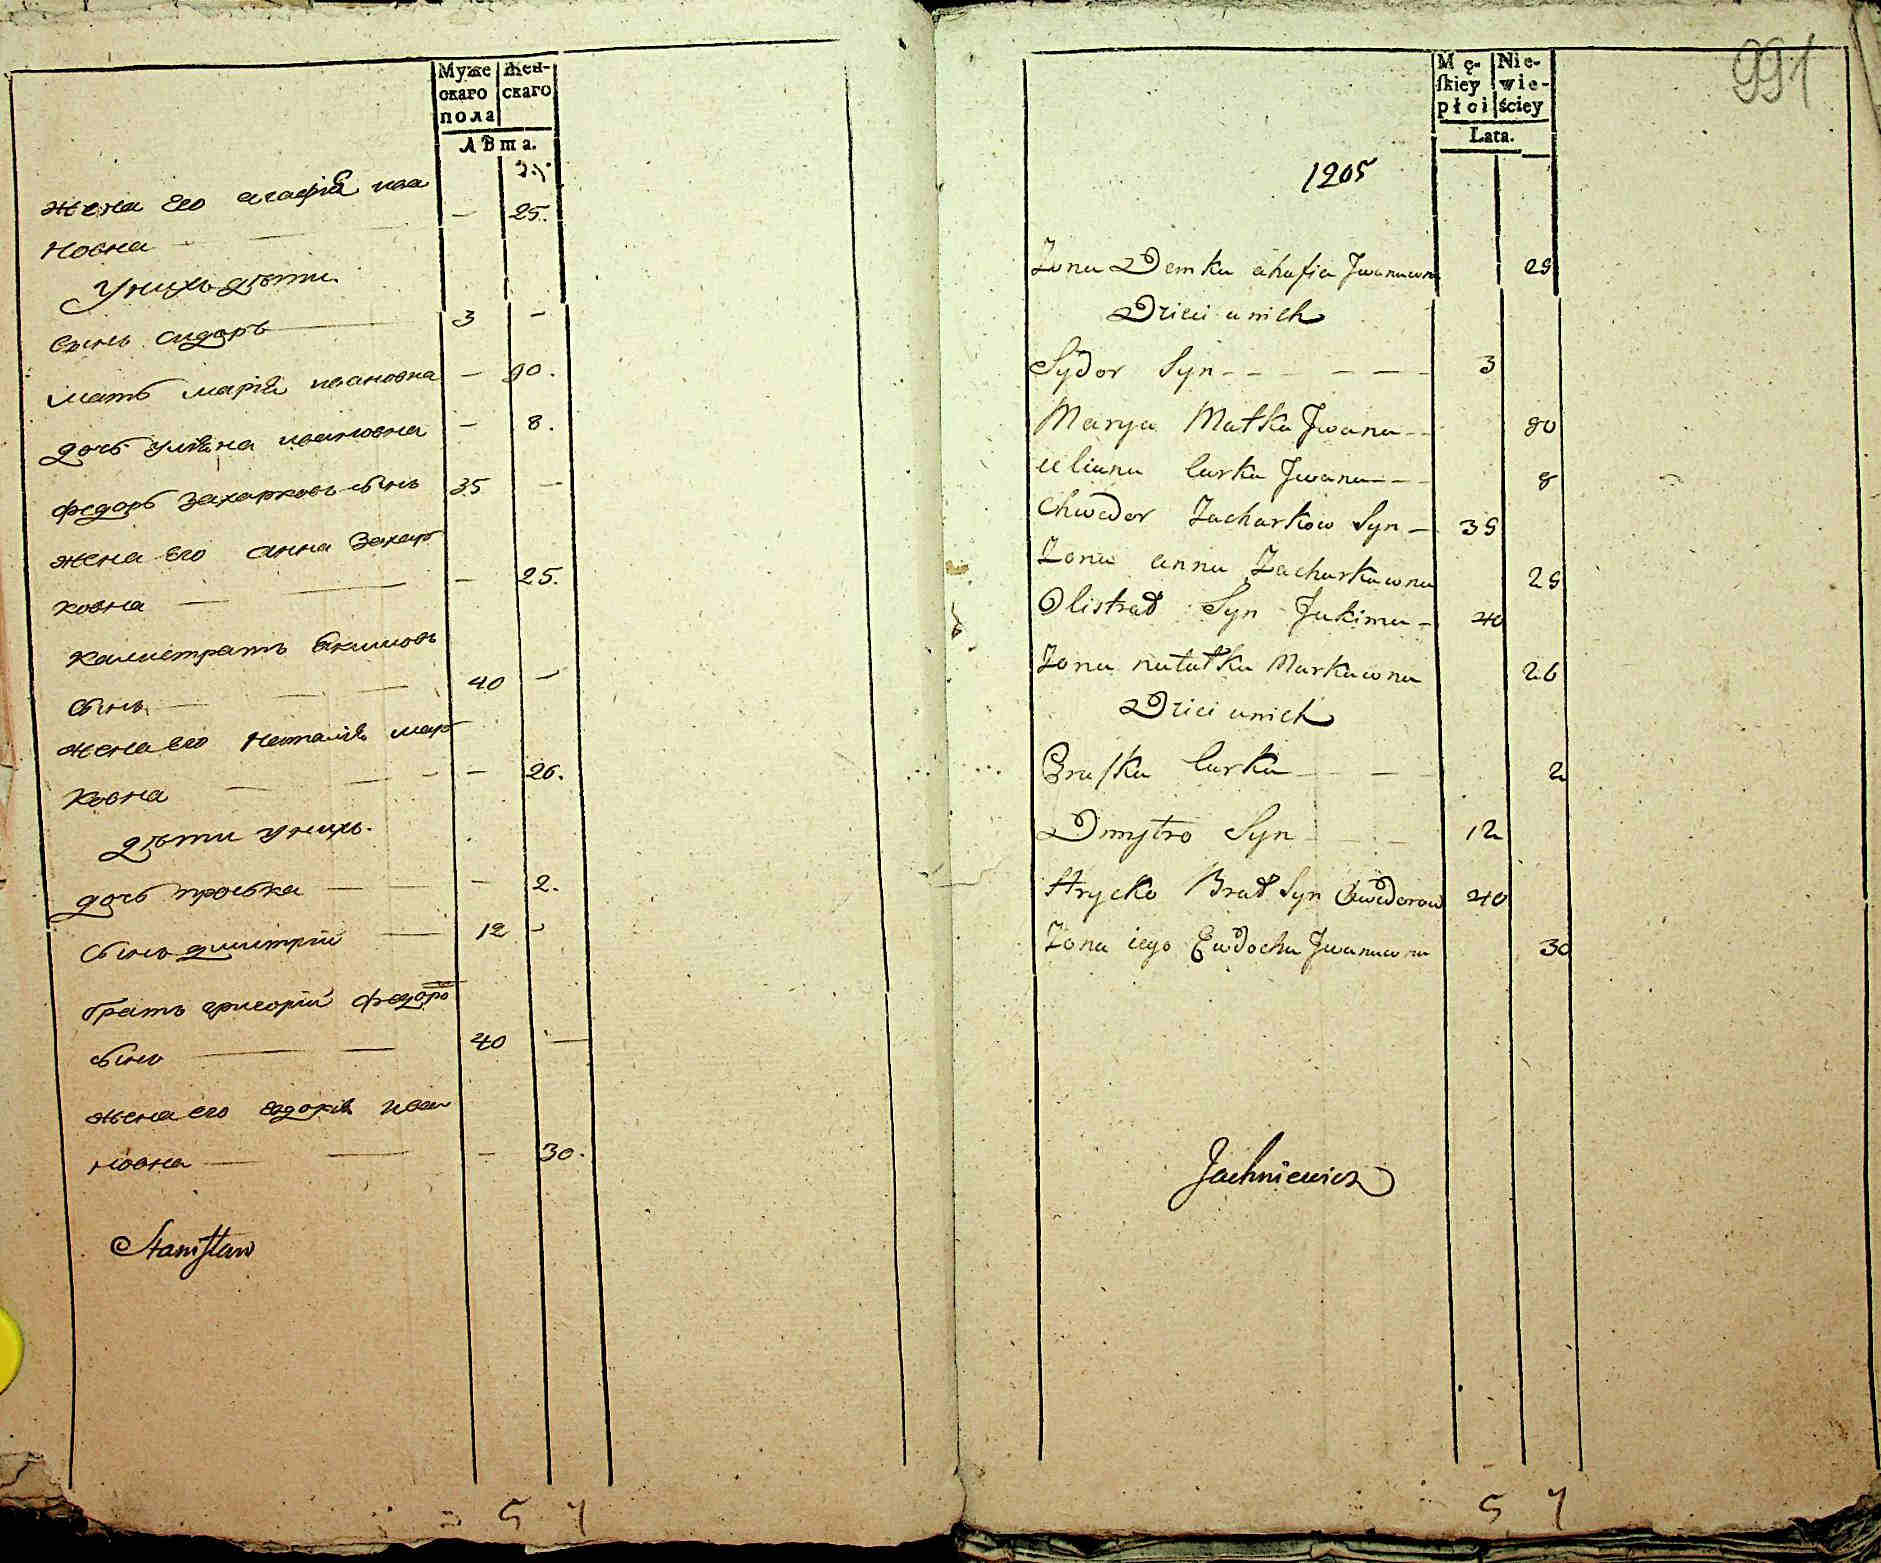 Муже Жен-
скаго скаго
пола
Лѣта.
25.
жена его агафія ива
новна — — — 25.
У нихъ дѣти
сынъ сидоръ — 3 —
мать марія ивановна — 90.
дочь уліяна ивановна — 8.
федоръ захарковъ сынъ 35 —
жена его анна захар
ковна — — — 25.
калистратъ екимовъ
сынъ — — — 40 —
жена его наталія мар
ковна — — — 26.
дѣти у нихъ.
дочь проська — — — 2.
сынъ димитрій — 12 —
братъ григорій федоро
сынъ — — 40 —
жена его евдокія ива
новна — — — 30.
Stanisław
5 7
991
Mę- Nie-
skiey wie-
płci ściey
Lata.
1205
Zona Demka ahafia Jwanowna 25
Dzieci u nich
Sydor Syn — — — — — 3
Marya Matka Jwana — — 90
Uliana Curka Jwana — — — 8
Chwedor Zacharkow Syn — 35
Zona anna Zacharkowna 25
Olistrat Syn Jakima — 40
Zona natałka Markowna 26
Dzieci u nich
Praska Curka — — — 2
Dmytro Syn — — — 12
Hrycko Brat Syn Chwedorow 40
Zona iego Ewdocha Jwanowna 30
Jachniewicz
5 7